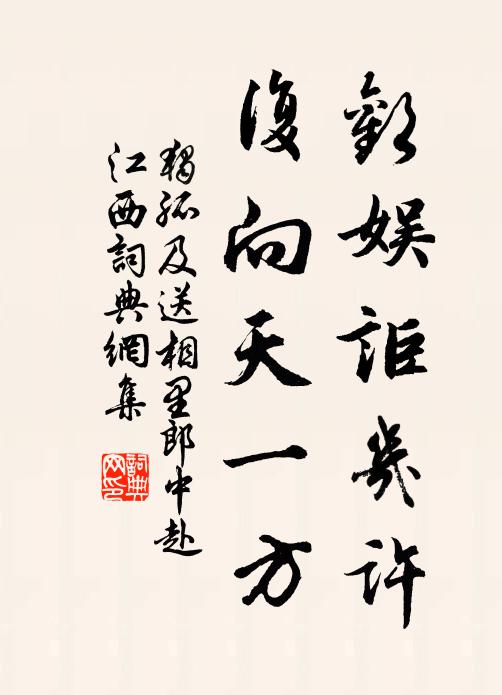 歡娛詎幾許
復向天一方
獨孤及送相里郎中赴
江西詞典網集
詞典
网印